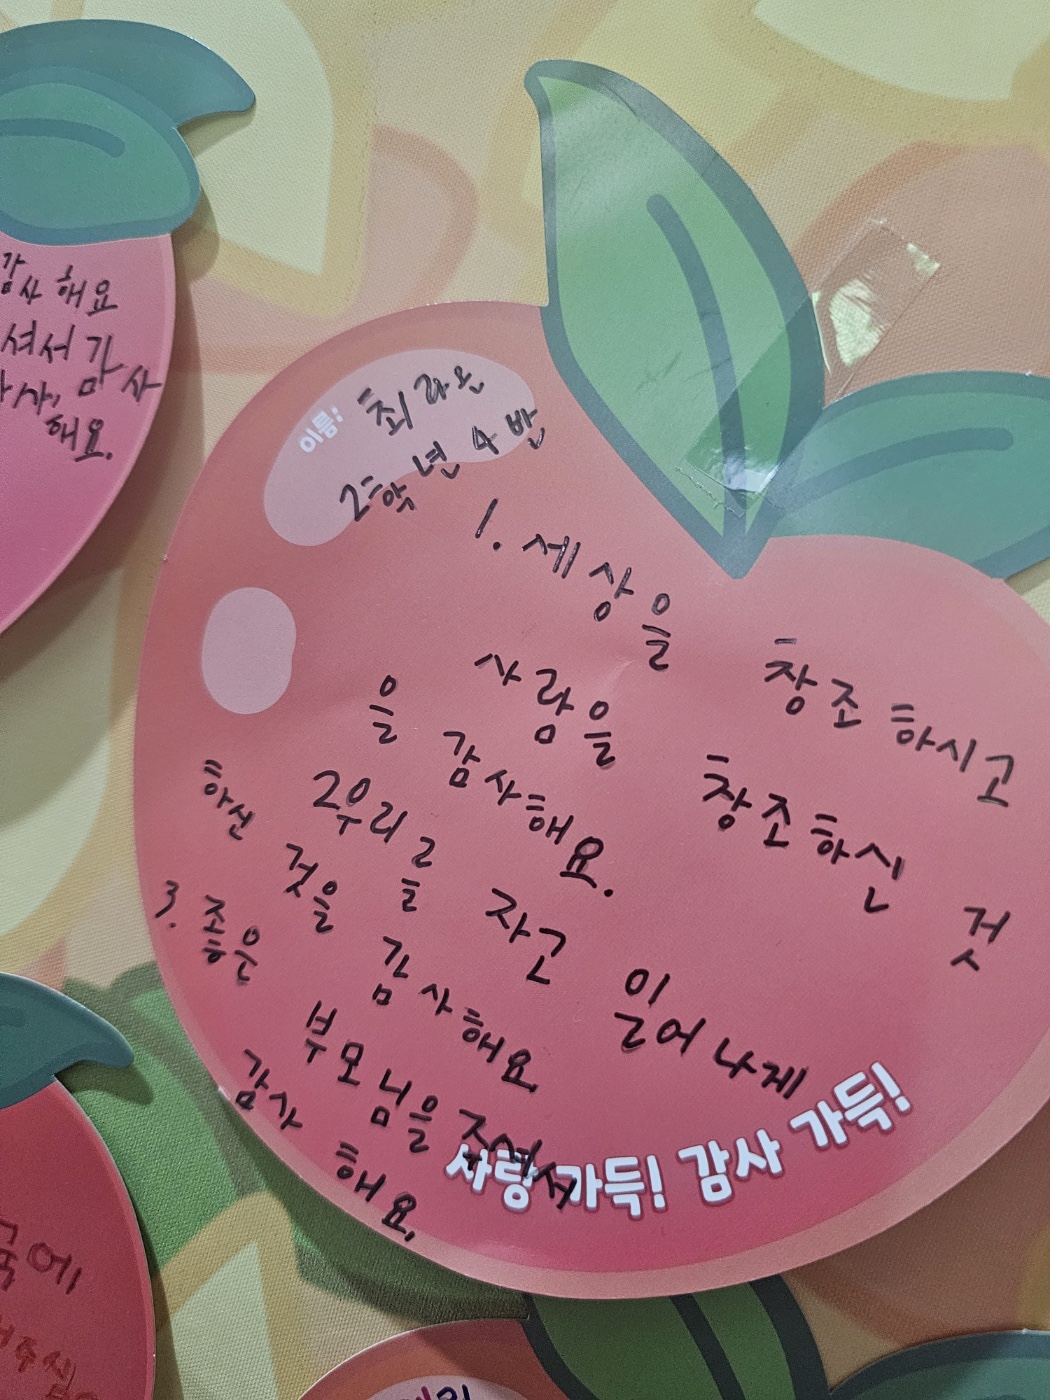 감사해요
셔서 감사
해요.
이름: 최라온
2학년 4반
1. 세상을 창조하시고
사람을 창조하신 것
을 감사해요.
2 우리를 자고 일어나게
하신 것을 감사해요
3. 좋은 부모님을 주셔서
감사해요.
사랑 가득! 감사 가득!
에